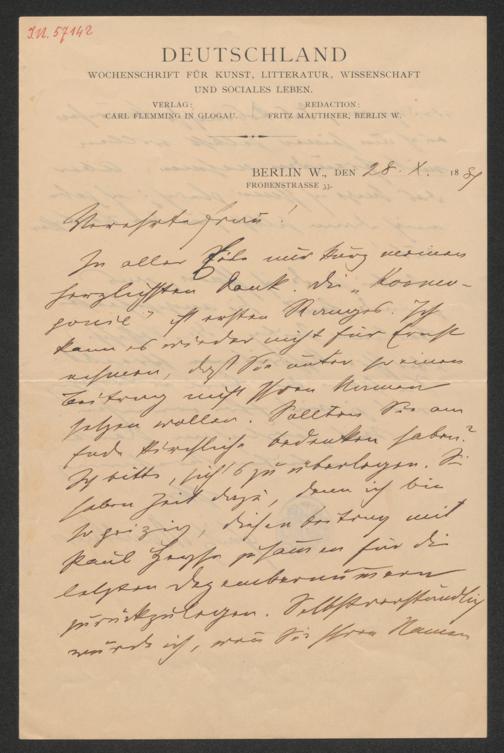 I.N. 57142
DEUTSCHLAND
WOCHENSCHRIFT FÜR KUNST, LITTERATUR, WISSENSCHAFT
UND SOCIALES LEBEN.
VERLAG:
CARL FLEMMING IN GLOGAU.
REDACTION:
FRITZ MAUTHNER, BERLIN W.
BERLIN W., DEN 28. X. 1889
FROBENSTRASSE 33.
Verehrte Frau!
In aller Eile nur kurz meinen
herzlichsten Dank. Die „Kosmo-
gonie" ist ersten Ranges. Ich
kann es wieder nicht für Ernst
nehmen, daß Sie unter so einen
Beitrag nicht Ihren Namen
setzen wollen. Sollten Sie am
Ende kirchliche Bedenken haben?
Ich bitte, sich's zu überlegen. Sie
haben Zeit dazu, denn ich bin
so geizig, diesen Beitrag mit
Paul Heyse zusammen für die
letzten Dezembernummern
zurückzulegen. Selbstverständlich
würde ich, wenn Sie Ihren Namen